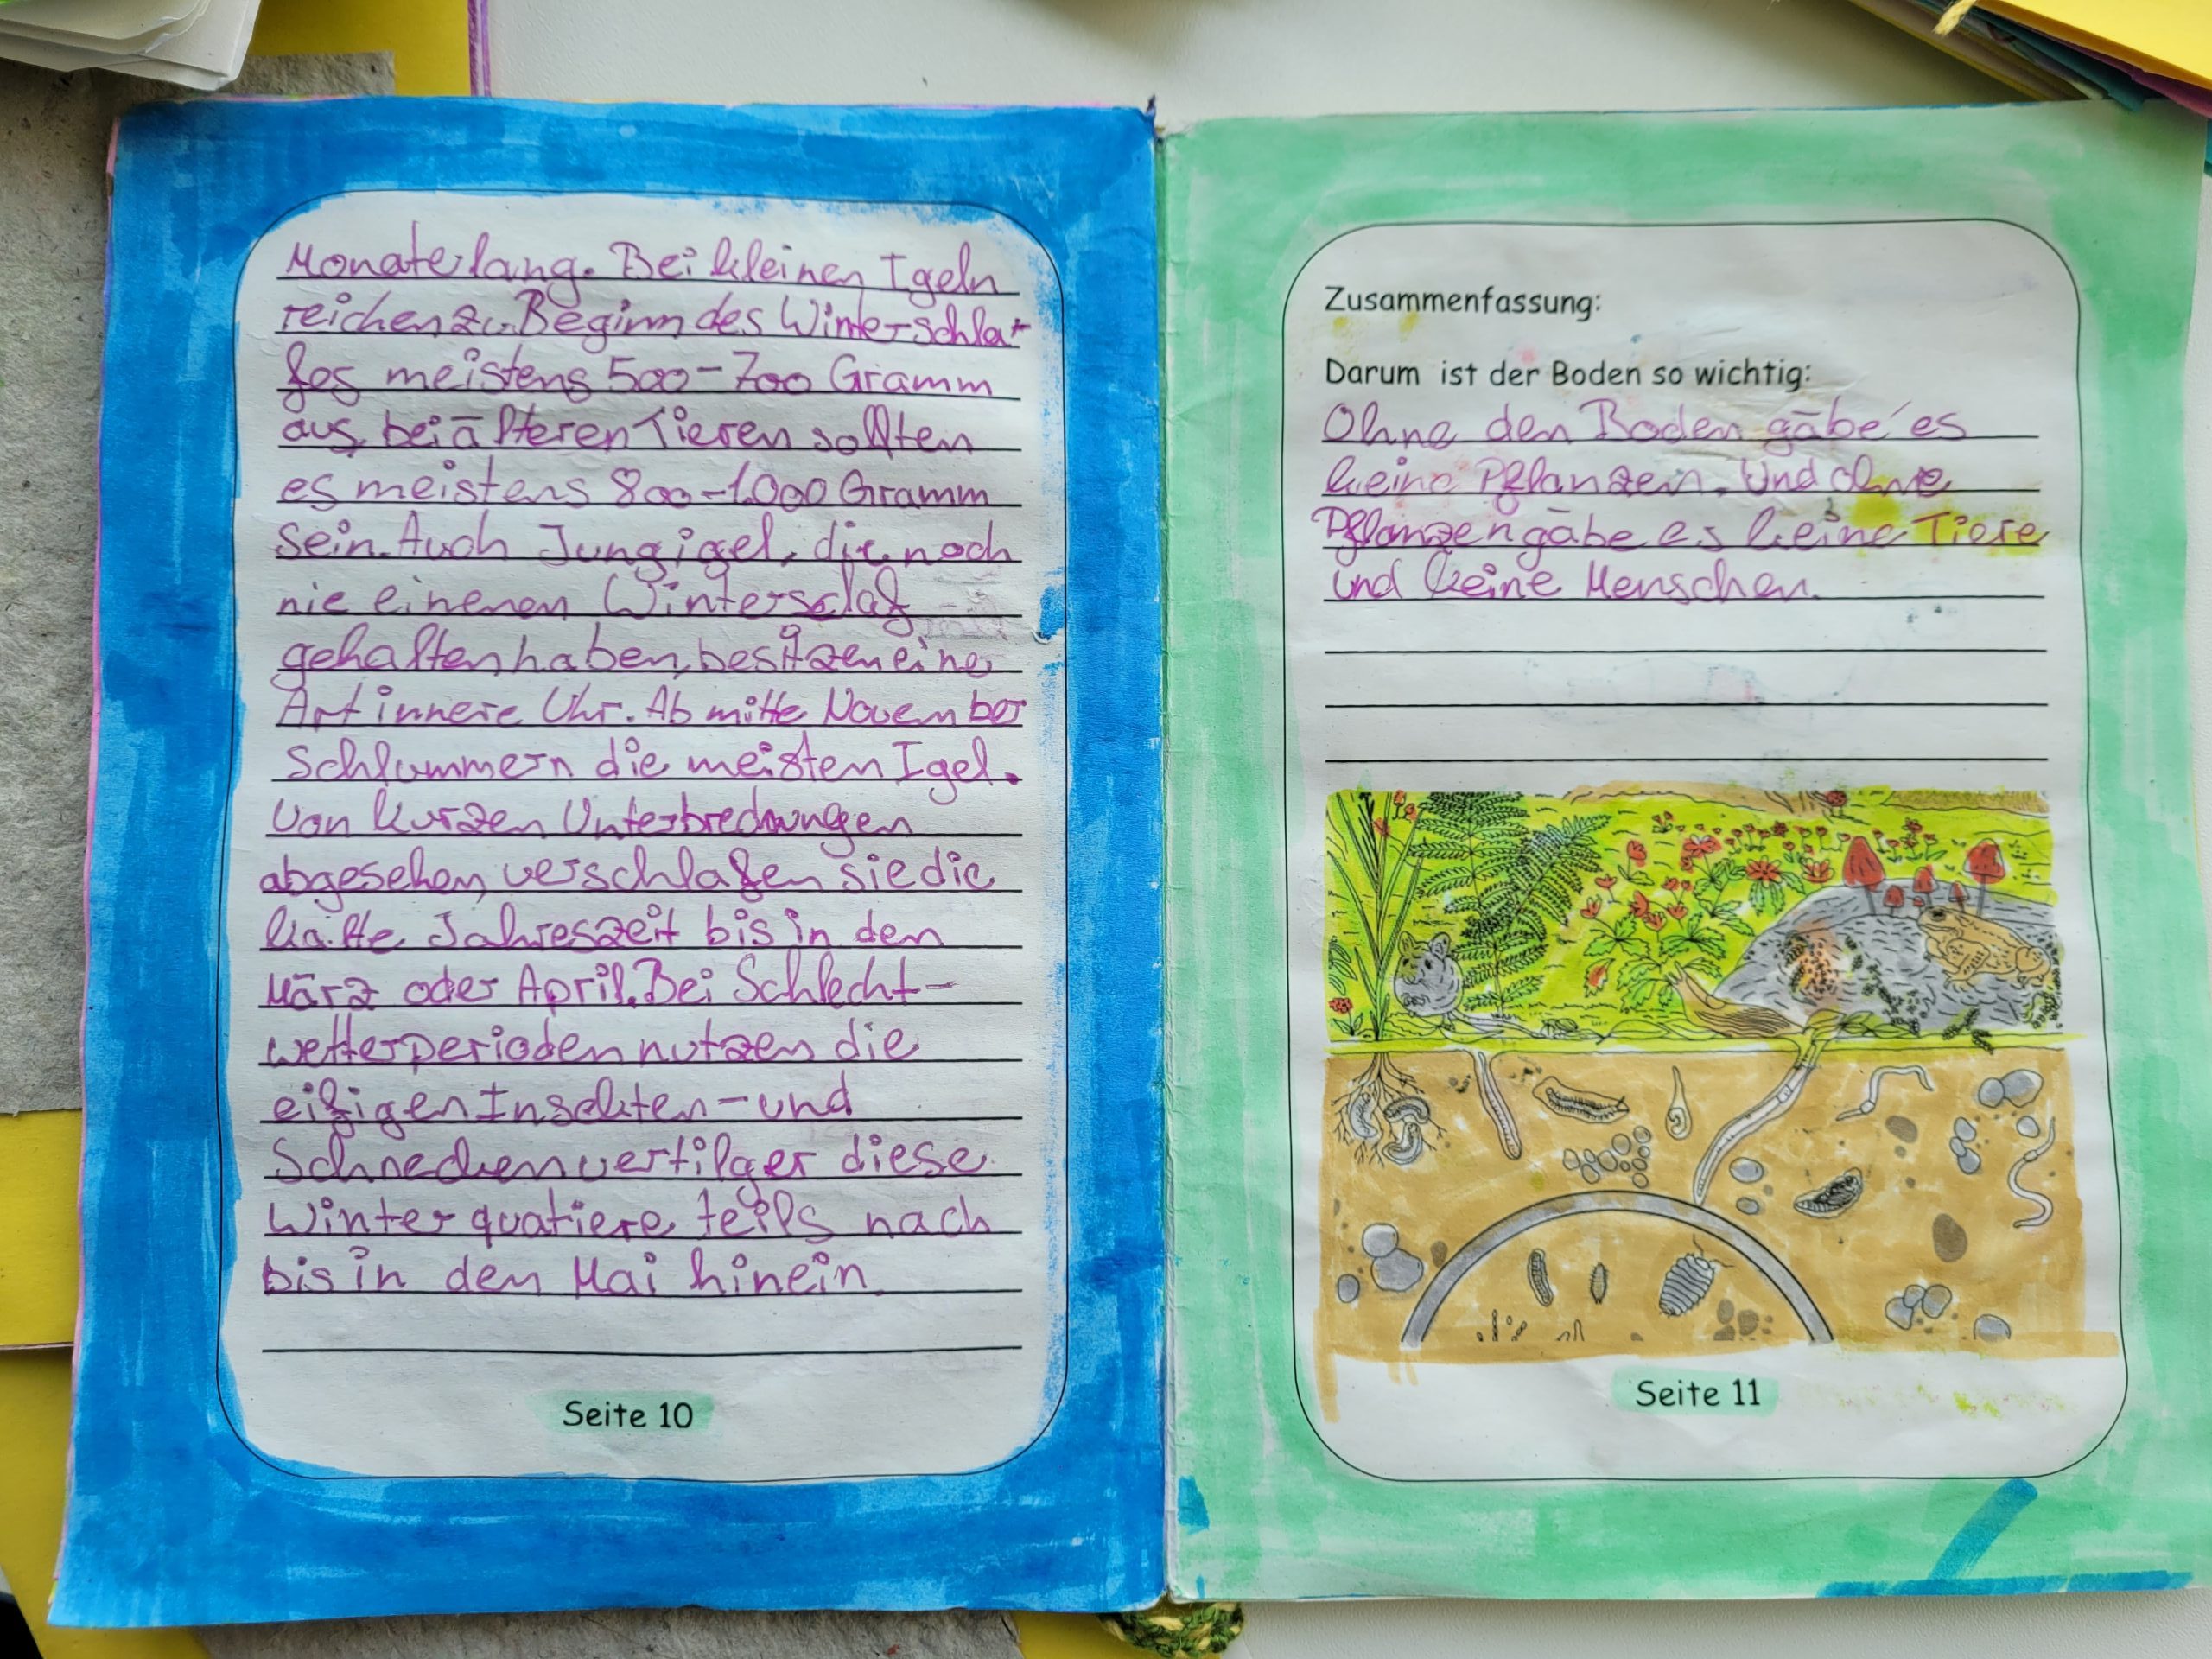 Monate lang. Bei kleinen Igeln
reichen zu Beginn des Winterschla-
fes meistens 500-700 Gramm
aus, bei älteren Tieren sollten
es meistens 800-1.000 Gramm
sein. Auch Jungigel, die noch
nie einenen Winterschlaf
gehalten haben, besitzen eine
Art innere Uhr. Ab mitte November
Schlummern die meisten Igel.
Von kurzen Unterbrechungen
abgesehen, verschlafen sie die
kalte Jahreszeit bis in den
März oder April. Bei Schlecht-
wetterperioden nutzen die
eifigen Insekten-und
Schneckenvertilger diese
Winterquatiere teils nach
bis in den Mai hinein.
Seite 10
Zusammenfassung:
Darum ist der Boden so wichtig:
Ohne den Boden gäbe es
keine Pflanzen. Und ohne
Pflanzen gäbe es keine Tiere
und keine Menschen.
Seite 11